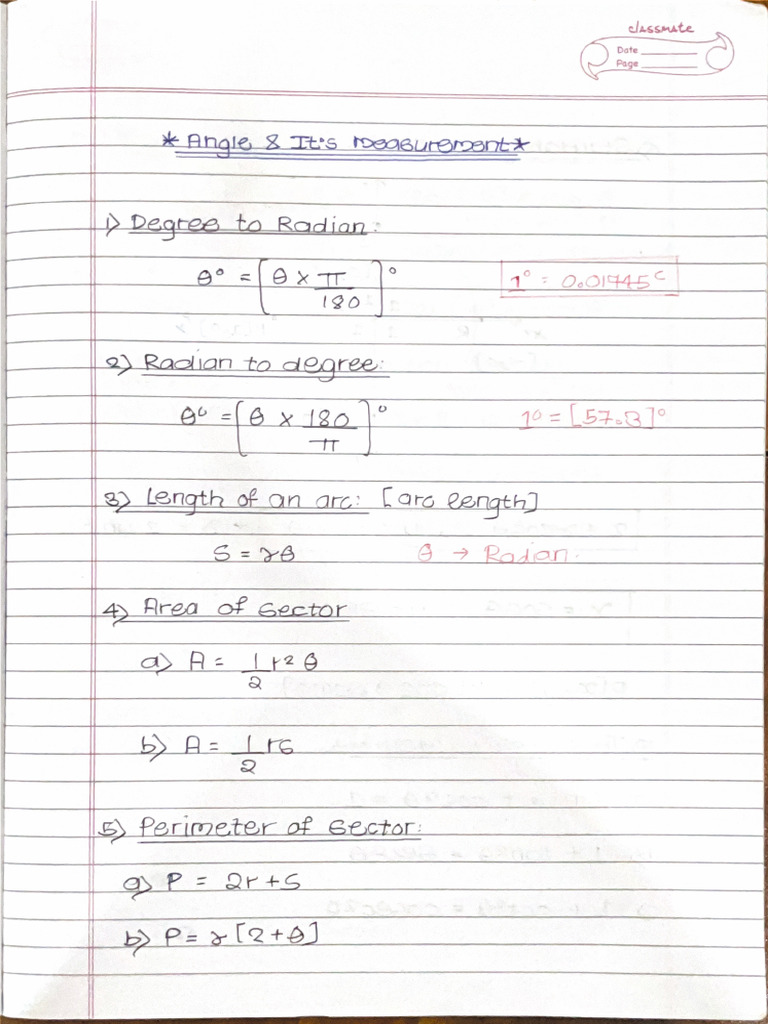 classmate
Date
Page
*Angle & It's measurement*
1) Degree to Radian:
θ° = [θ × π/180]° 1° = 0.01745ᶜ
2) Radian to degree:
θ° = [θ × 180/π]° 1° = [57.3]°
3) Length of an arc: [arc length]
S = rθ θ → Radian.
4) Area of Sector
a) A = 1/2 r² θ
b) A = 1/2 rs
5) Perimeter of Sector:
a) P = 2r + S
b) P = r [2 + θ]